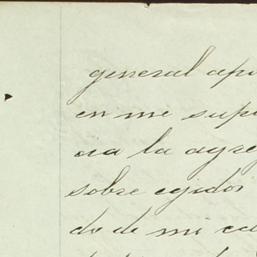 general apr
en me supe
cia la agre
sobre egidos
do de mi ca